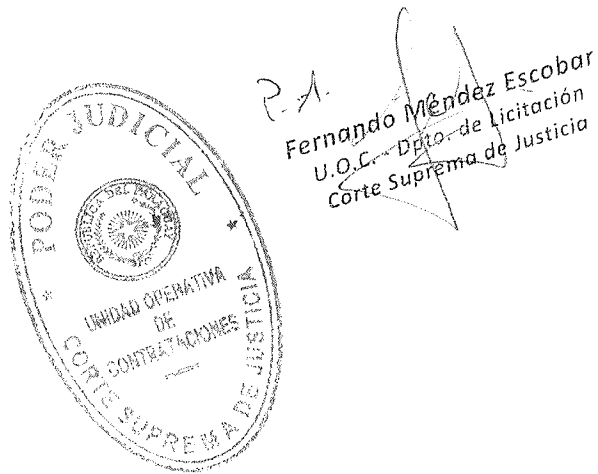 P.A.
Fernando Méndez Escobar
U.O.C. - Dpto. de Licitación
Corte Suprema de Justicia
PODER JUDICIAL
REPUBLICA DEL PARAGUAY
UNIDAD OPERATIVA
DE
CONTRATACIONES
CORTE SUPREMA DE JUSTICIA